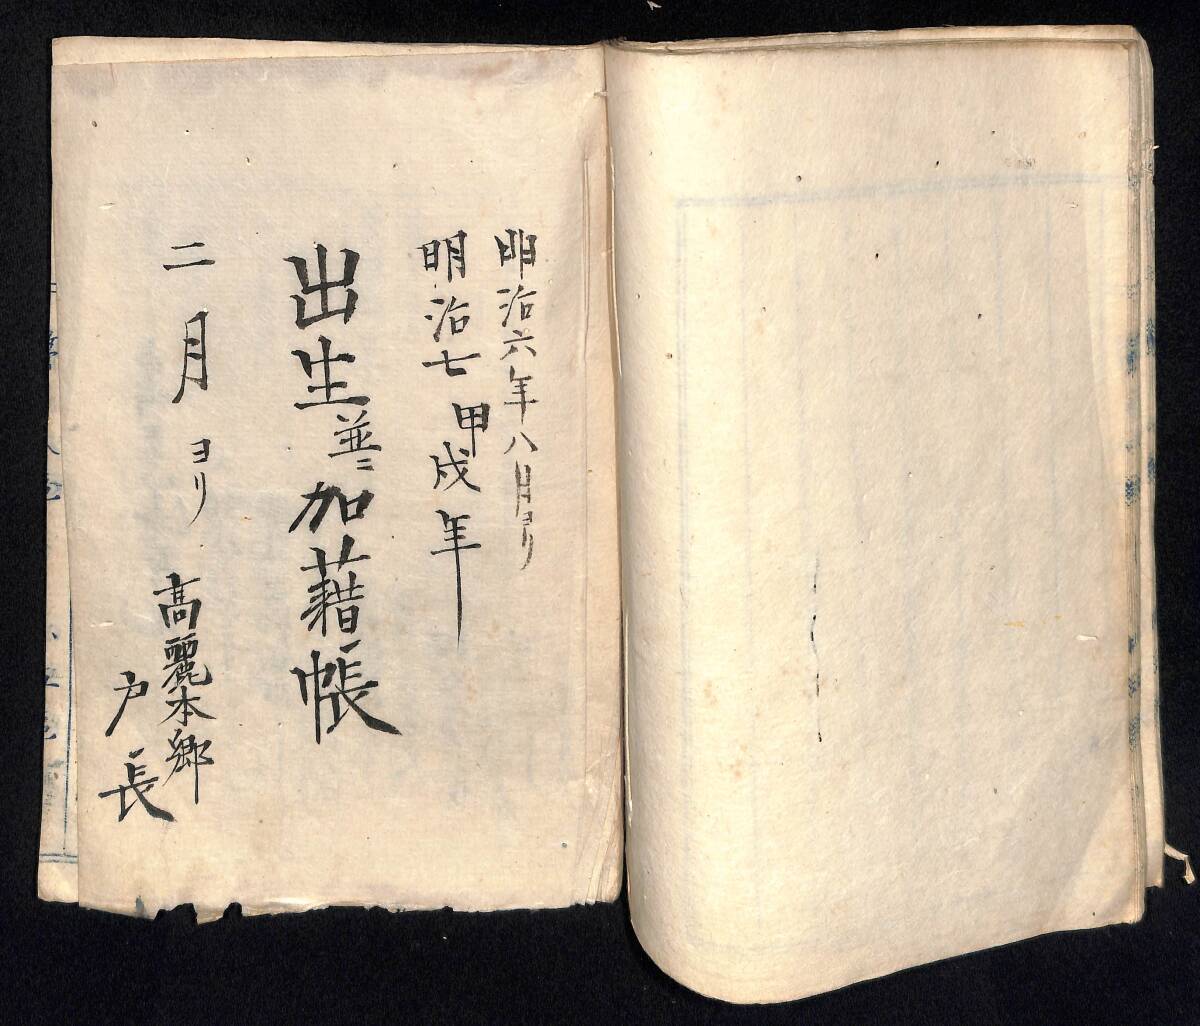 明治六年八月ヨリ
明治七甲戌年
出生並ニ加藉帳
二月ヨリ
高麗本郷
戸長